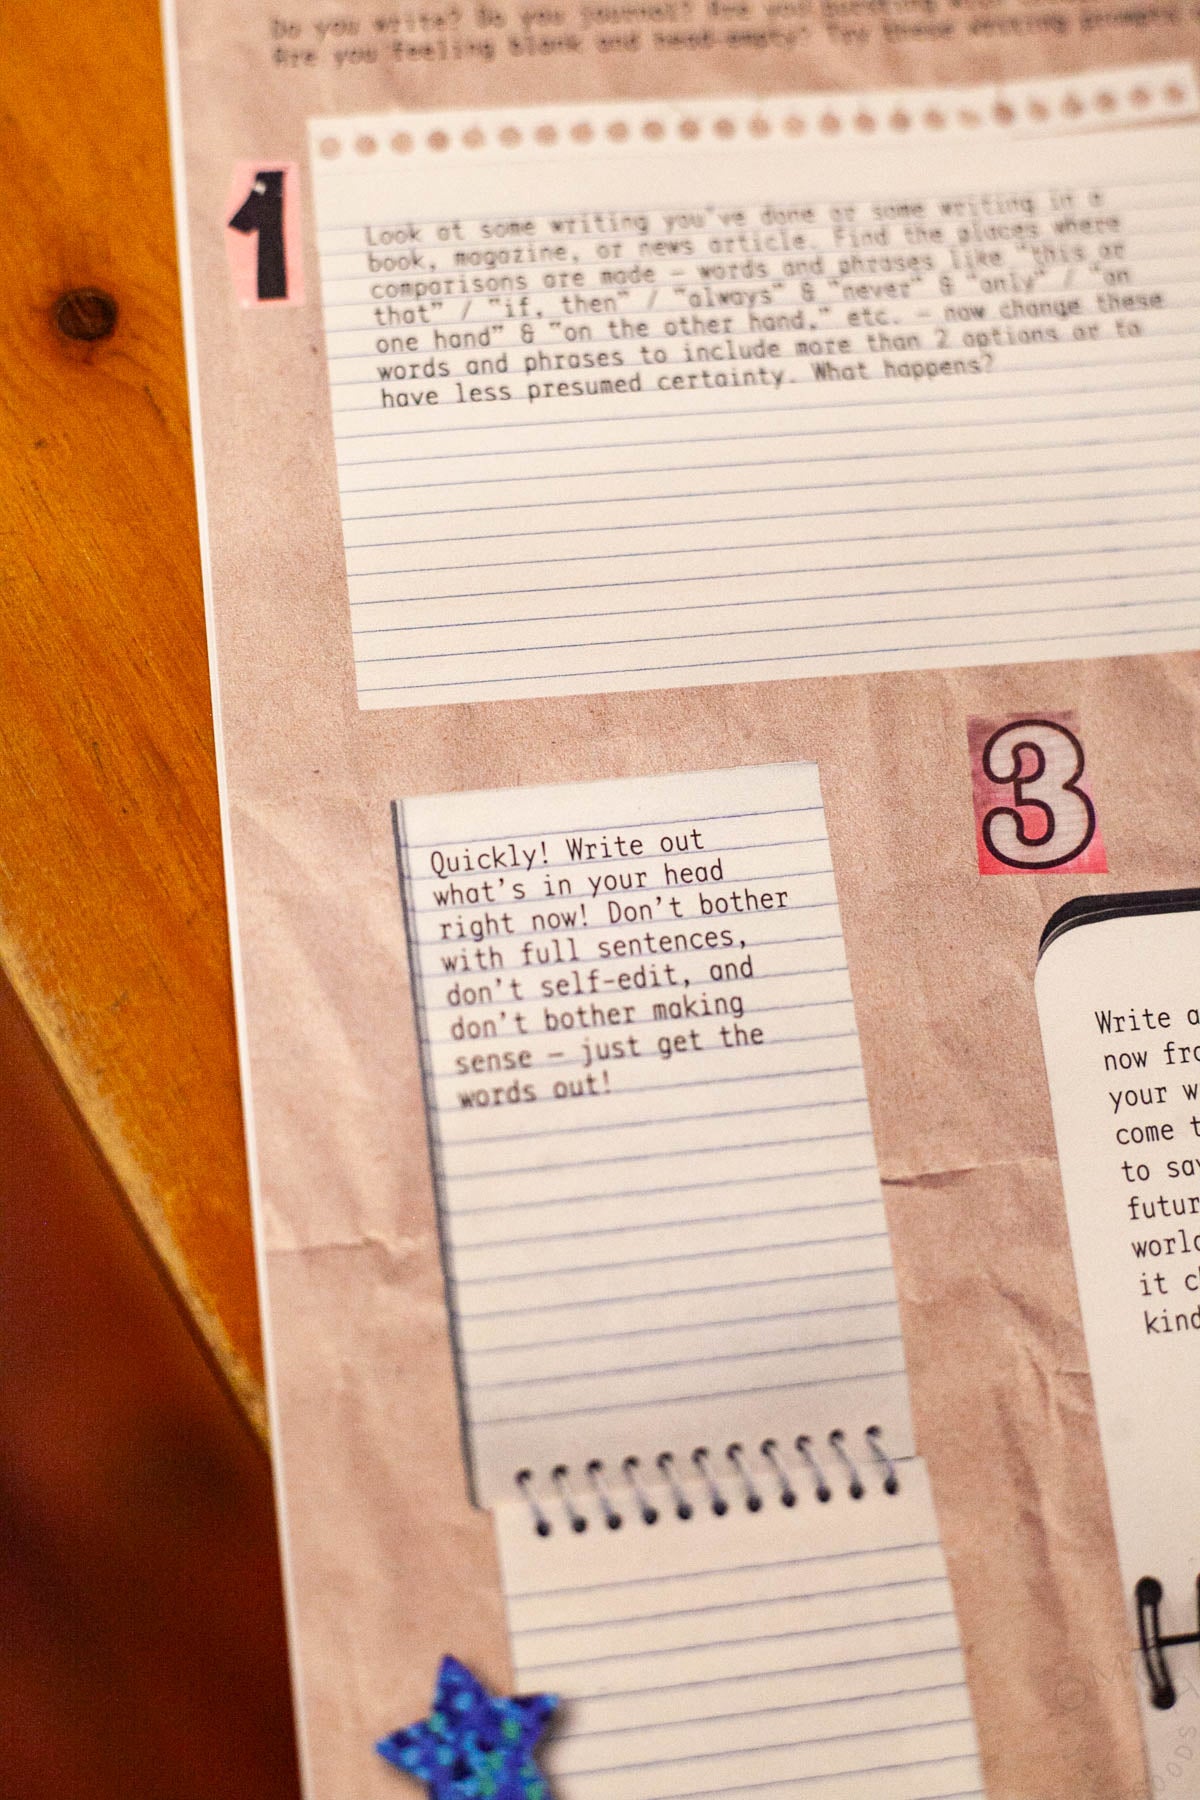 Do you write? Do you journal? Are you bursting with
Are you feeling blank and head-empty? Try these writing prompts
1
Look at some writing you've done or some writing in a
book, magazine, or news article. Find the places where
comparisons are made – words and phrases like "this or
that" / "if, then" / "always" & "never" & "only" / "on
one hand" & "on the other hand," etc. – now change these
words and phrases to include more than 2 options or to
have less presumed certainty. What happens?
Quickly! Write out
what's in your head
right now! Don't bother
with full sentences,
don't self-edit, and
don't bother making
sense – just get the
words out!
3
Write a
now fro
your w
come t
to sav
futur
world
it c
kind